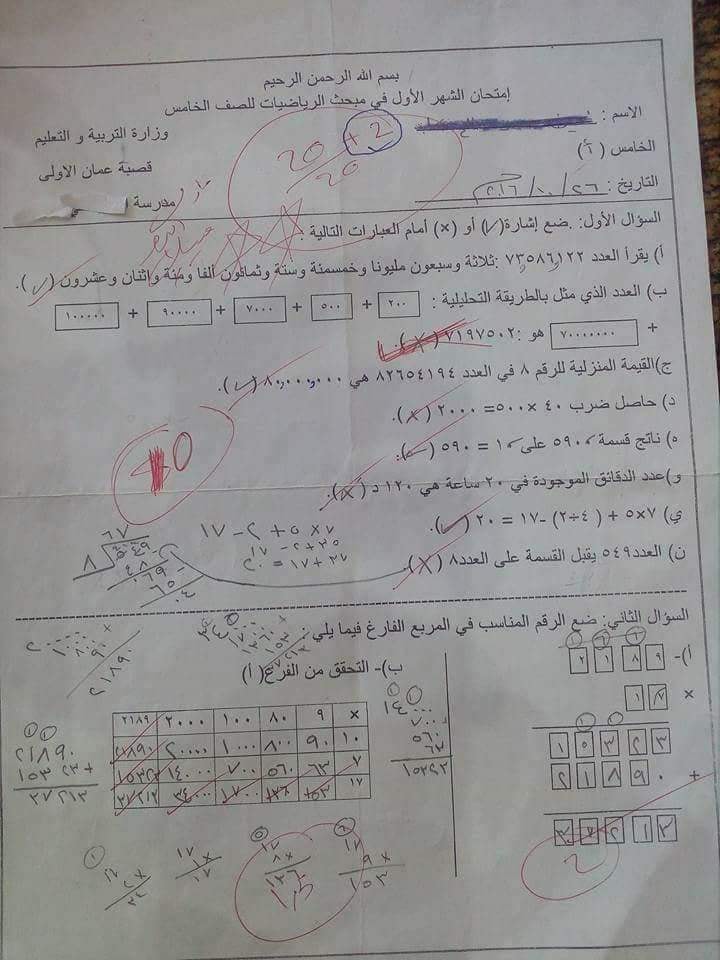 بسم الله الرحمن الرحيم
إمتحان الشهر الأول في مبحث الرياضيات للصف الخامس
الاسم :
وزارة التربية و التعليم
الخامس ( أ )
قصبة عمان الاولى
التاريخ : ٢٦ / ١٠ / ٢٠١٦
مدرسة
20 + 2
20
السؤال الأول: .ضع إشارة(√) أو (×) أمام العبارات التالية :
أ) يقرأ العدد ٧٣٥٨٦١٢٢ :ثلاثة وسبعون مليونا وخمسمئة وستة وثمانون ألفا ومئة واثنان وعشرون (√).
ب) العدد الذي مثل بالطريقة التحليلية : ٢٠٠ + ٥٠٠ + ٧٠٠٠ + ٩٠٠٠٠ + ١٠٠٠٠٠
+ ٧٠٠٠٠٠٠ هو :٧١٩٧٥٠٢ (×).
ج)القيمة المنزلية للرقم ٨ في العدد ٨٢٦٥٤١٩٤ هي ٨٠,٠٠٠,٠٠٠ (√).
د) حاصل ضرب ٤٠ ×٥٠٠= ٢٠٠٠ (×).
ه) ناتج قسمة ٥٩٠٠ على ١٠ = ٥٩٠ (√).
و)عدد الدقائق الموجودة في ٢٠ ساعة هي ١٢٠ د (×).
ي) ٧×٥ + (٤÷٢) -١٧ = ٢٠ (√).
ن) العدد٥٤٩ يقبل القسمة على العدد٨ (×)
٧×٥ + ٢ - ١٧
٣٥+٢-١٧
٣٧-١٧ = ٢٠
السؤال الثاني: ضع الرقم المناسب في المربع الفارغ فيما يلي :
أ)-
٢ ١ ٨ ٩
× ١٧
١ ٥ ٣ ٢ ٣
+ ٢ ١ ٨ ٩ ٠
٣ ٧ ٢ ١ ٣
2
ب)- التحقق من الفرغ( أ )
× ٩ ٨٠ ١٠٠ ٢٠٠٠ ٢١٨٩
١٠ ٩٠ ٨٠٠ ١٠٠٠ ٢٠٠٠٠ ٢١٨٩٠
٧ ٦٣ ٥٦٠ ٧٠٠ ١٤٠٠٠ ١٥٣٢٣
١٧ ١٥٣ ١٣٦٠ ١٧٠٠ ٣٤٠٠٠ ٣٧٢١٣
٢١٨٩٠
١٥٣٢٣ +
٣٧٢١٣
١٧
٩ ×
١٥٣
١٧
٨ ×
١٣٦
١٧
١ ×
١٧
١٧
٢ ×
٣٤